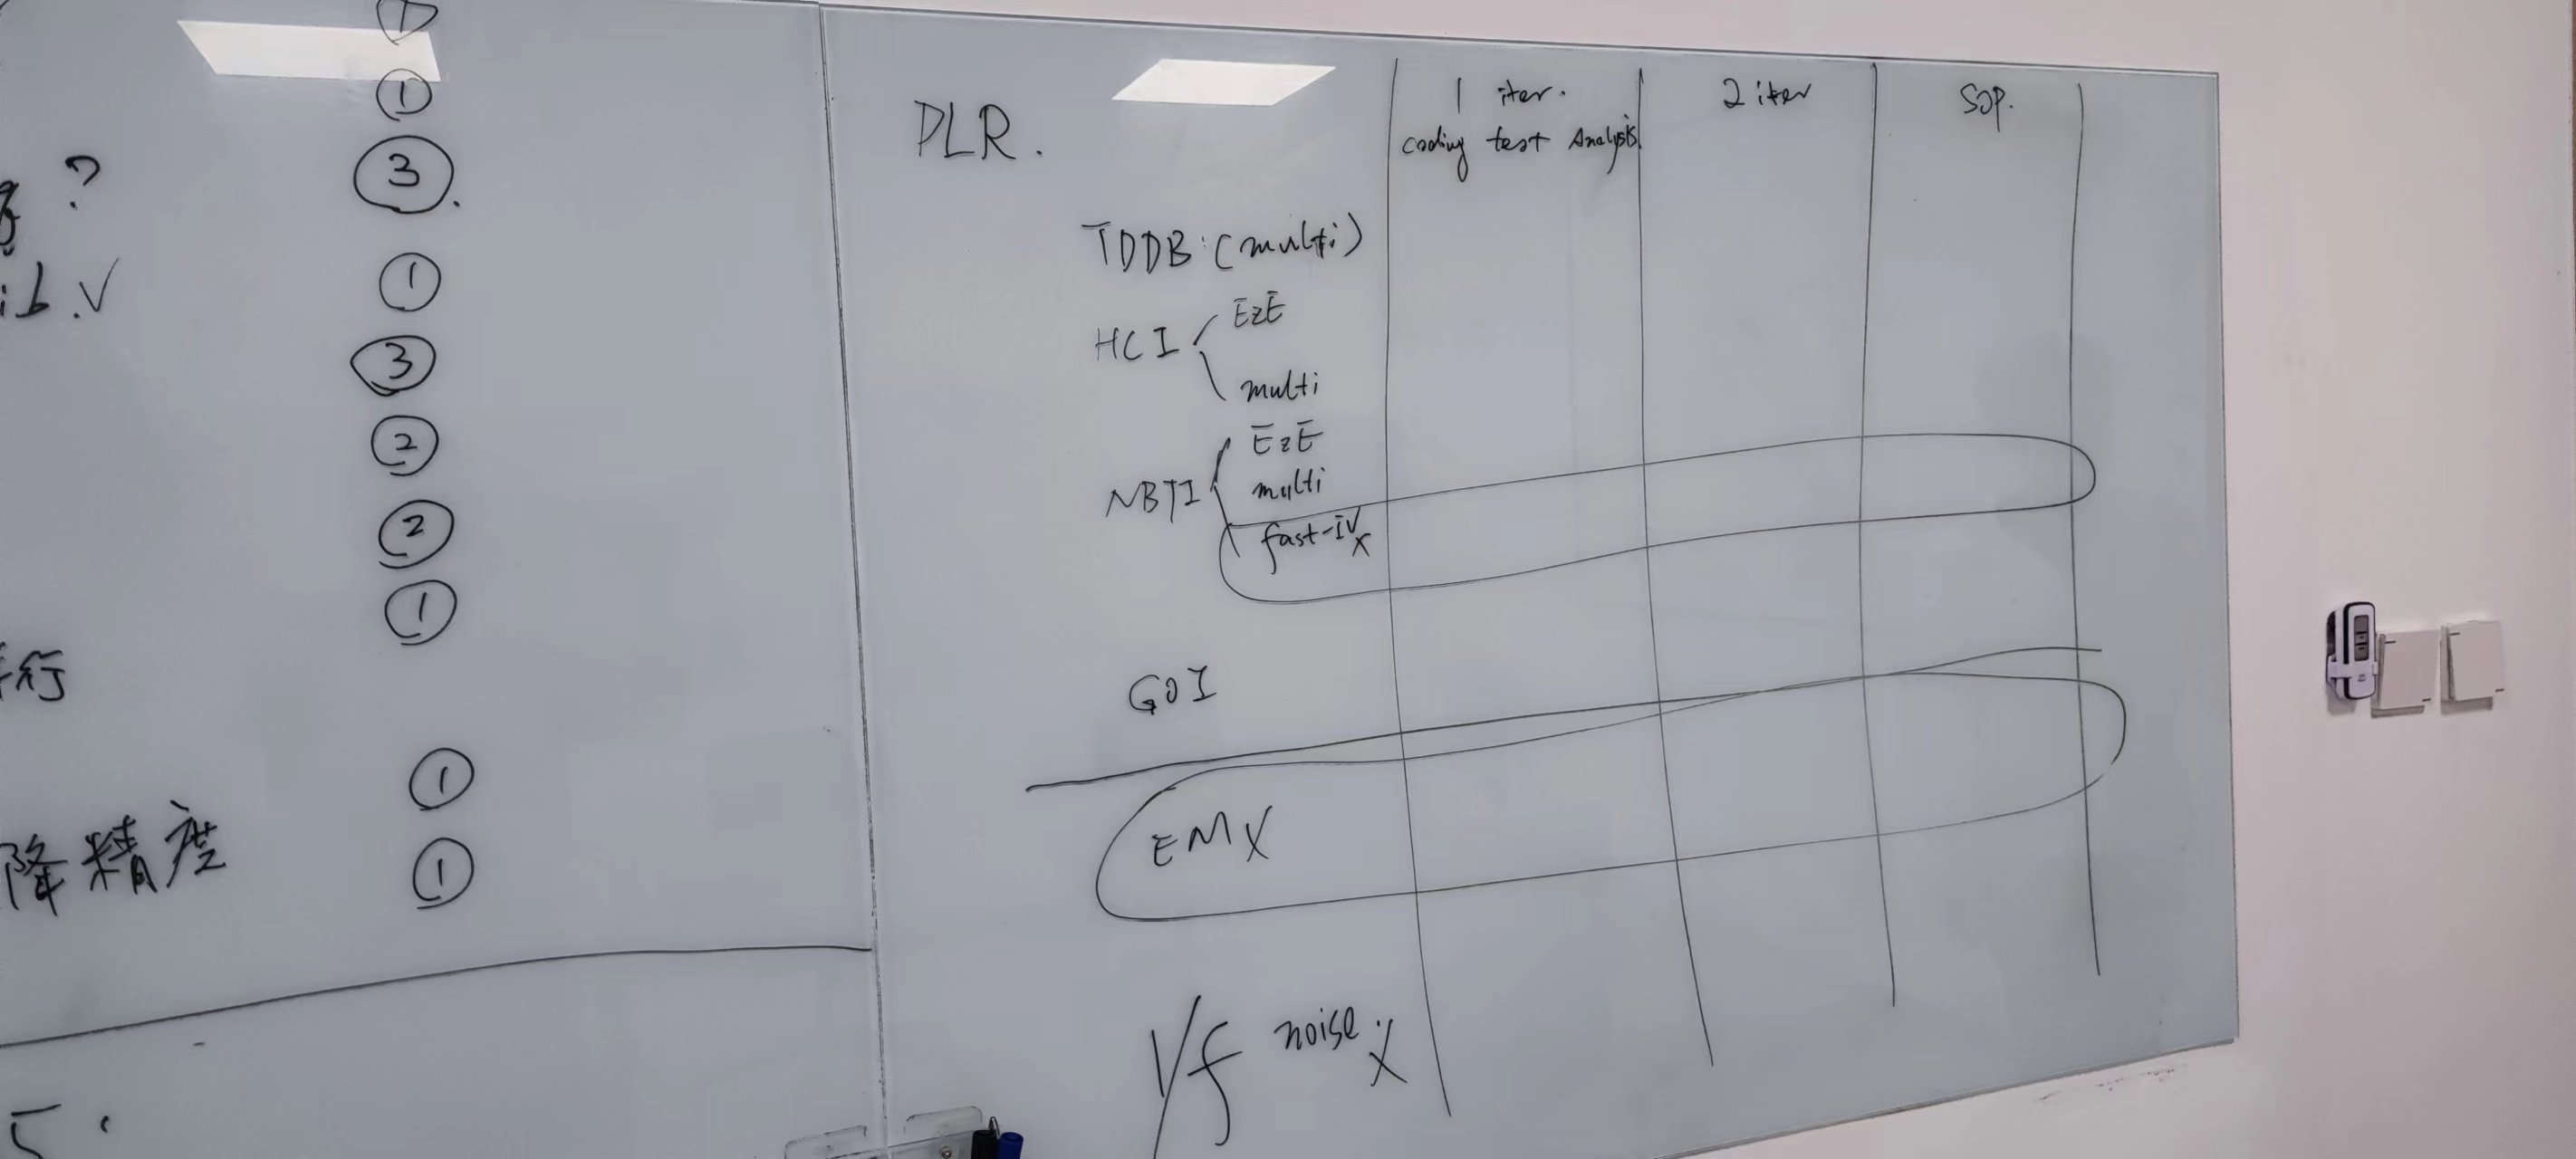 ①
①
?
③.
ib.V
①
③
②
②
①
行
①
降精度
①
5.
PLR.
1 iter.
coding test Analysis
2 iter
SOP.
TDDB (multi)
HCI
EzE
multi
NBTI
EzE
multi
fast-IV x
GOI
EM X
1/f noise X